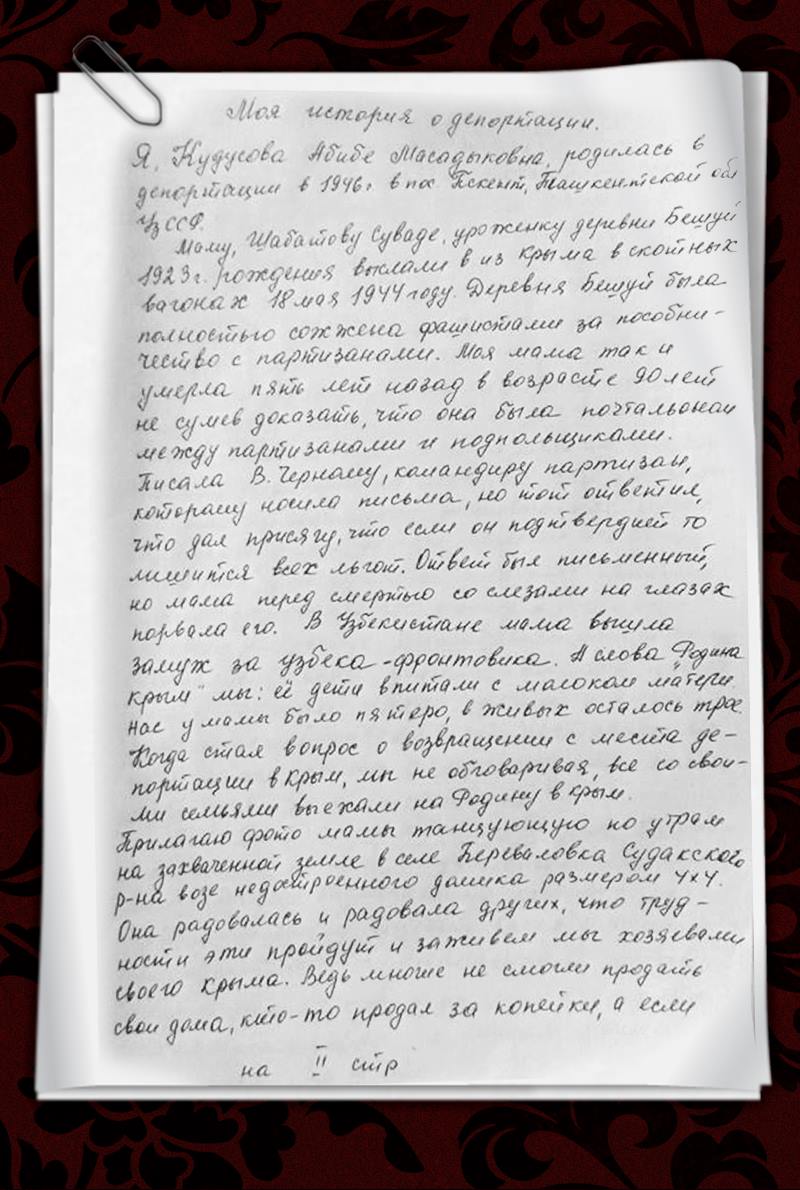 Моя история о депортации.
Я, Кудусова Абибе Масадыковна, родилась в
депортации в 1946г. в пос. Пскент, Ташкентской обл
УзССР.
Маму, Шабатову Суваде, уроженку деревни Бешуй
1923 г. рождения выслали в из Крыма в скотных
вагонах 18 мая 1944 году. Деревня Бешуй была
полностью сожжена фашистами за пособни-
чество с партизанами. Моя мама так и
умерла пять лет назад в возрасте 90 лет
не сумев доказать, что она была почтальоном
между партизанами и подпольщиками.
Писала В. Черному, командиру партизан,
которому носила письма, но тот ответил,
что дал присягу, что если он подтвердит то
лишится всех льгот. Ответ был письменный,
но мама перед смертью со слезами на глазах
порвала его. В Узбекистане мама вышла
замуж за узбека-фронтовика. А слова "Родина
Крым" мы: её дети впитали с молоком матери
нас у мамы было пятеро, в живых осталось трое.
Когда стал вопрос о возвращении с места де-
портации в Крым, мы не обговаривая, все со свои-
ми семьями выехали на Родину в Крым.
Прилагаю фото мамы танцующую по утрам
на захваченной земле в селе Переваловка Судакского
р-на возе недостроенного домика размером 4х4.
Она радовалась и радовала других, что труд-
ности эти пройдут и заживем мы хозяевами
своего Крыма. Ведь многие не смогли продать
свои дома, кто-то продал за копейки, а если
на II стр